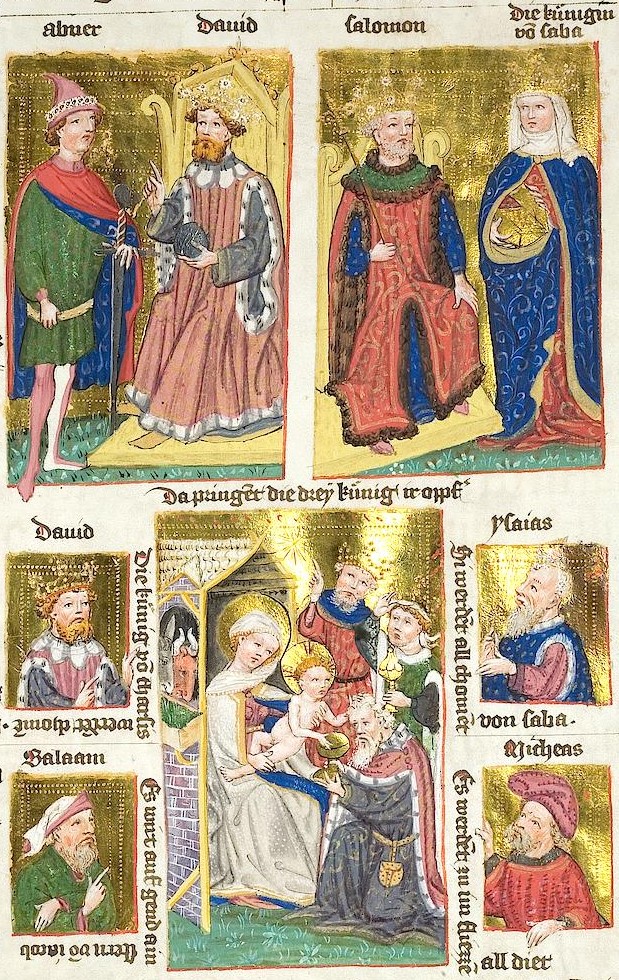 abner
Dauid
salomon
Die künigin
vō saba
Da pringēt die drey künig ir opf
Dauid
Die künig vō tharsis
ysaias
Si werdēt all chomēt
von saba.
Balaam
Es wirt auf gend ain
stern vō iacob
Micheas
Es werdēt zu im fliezze
all diet